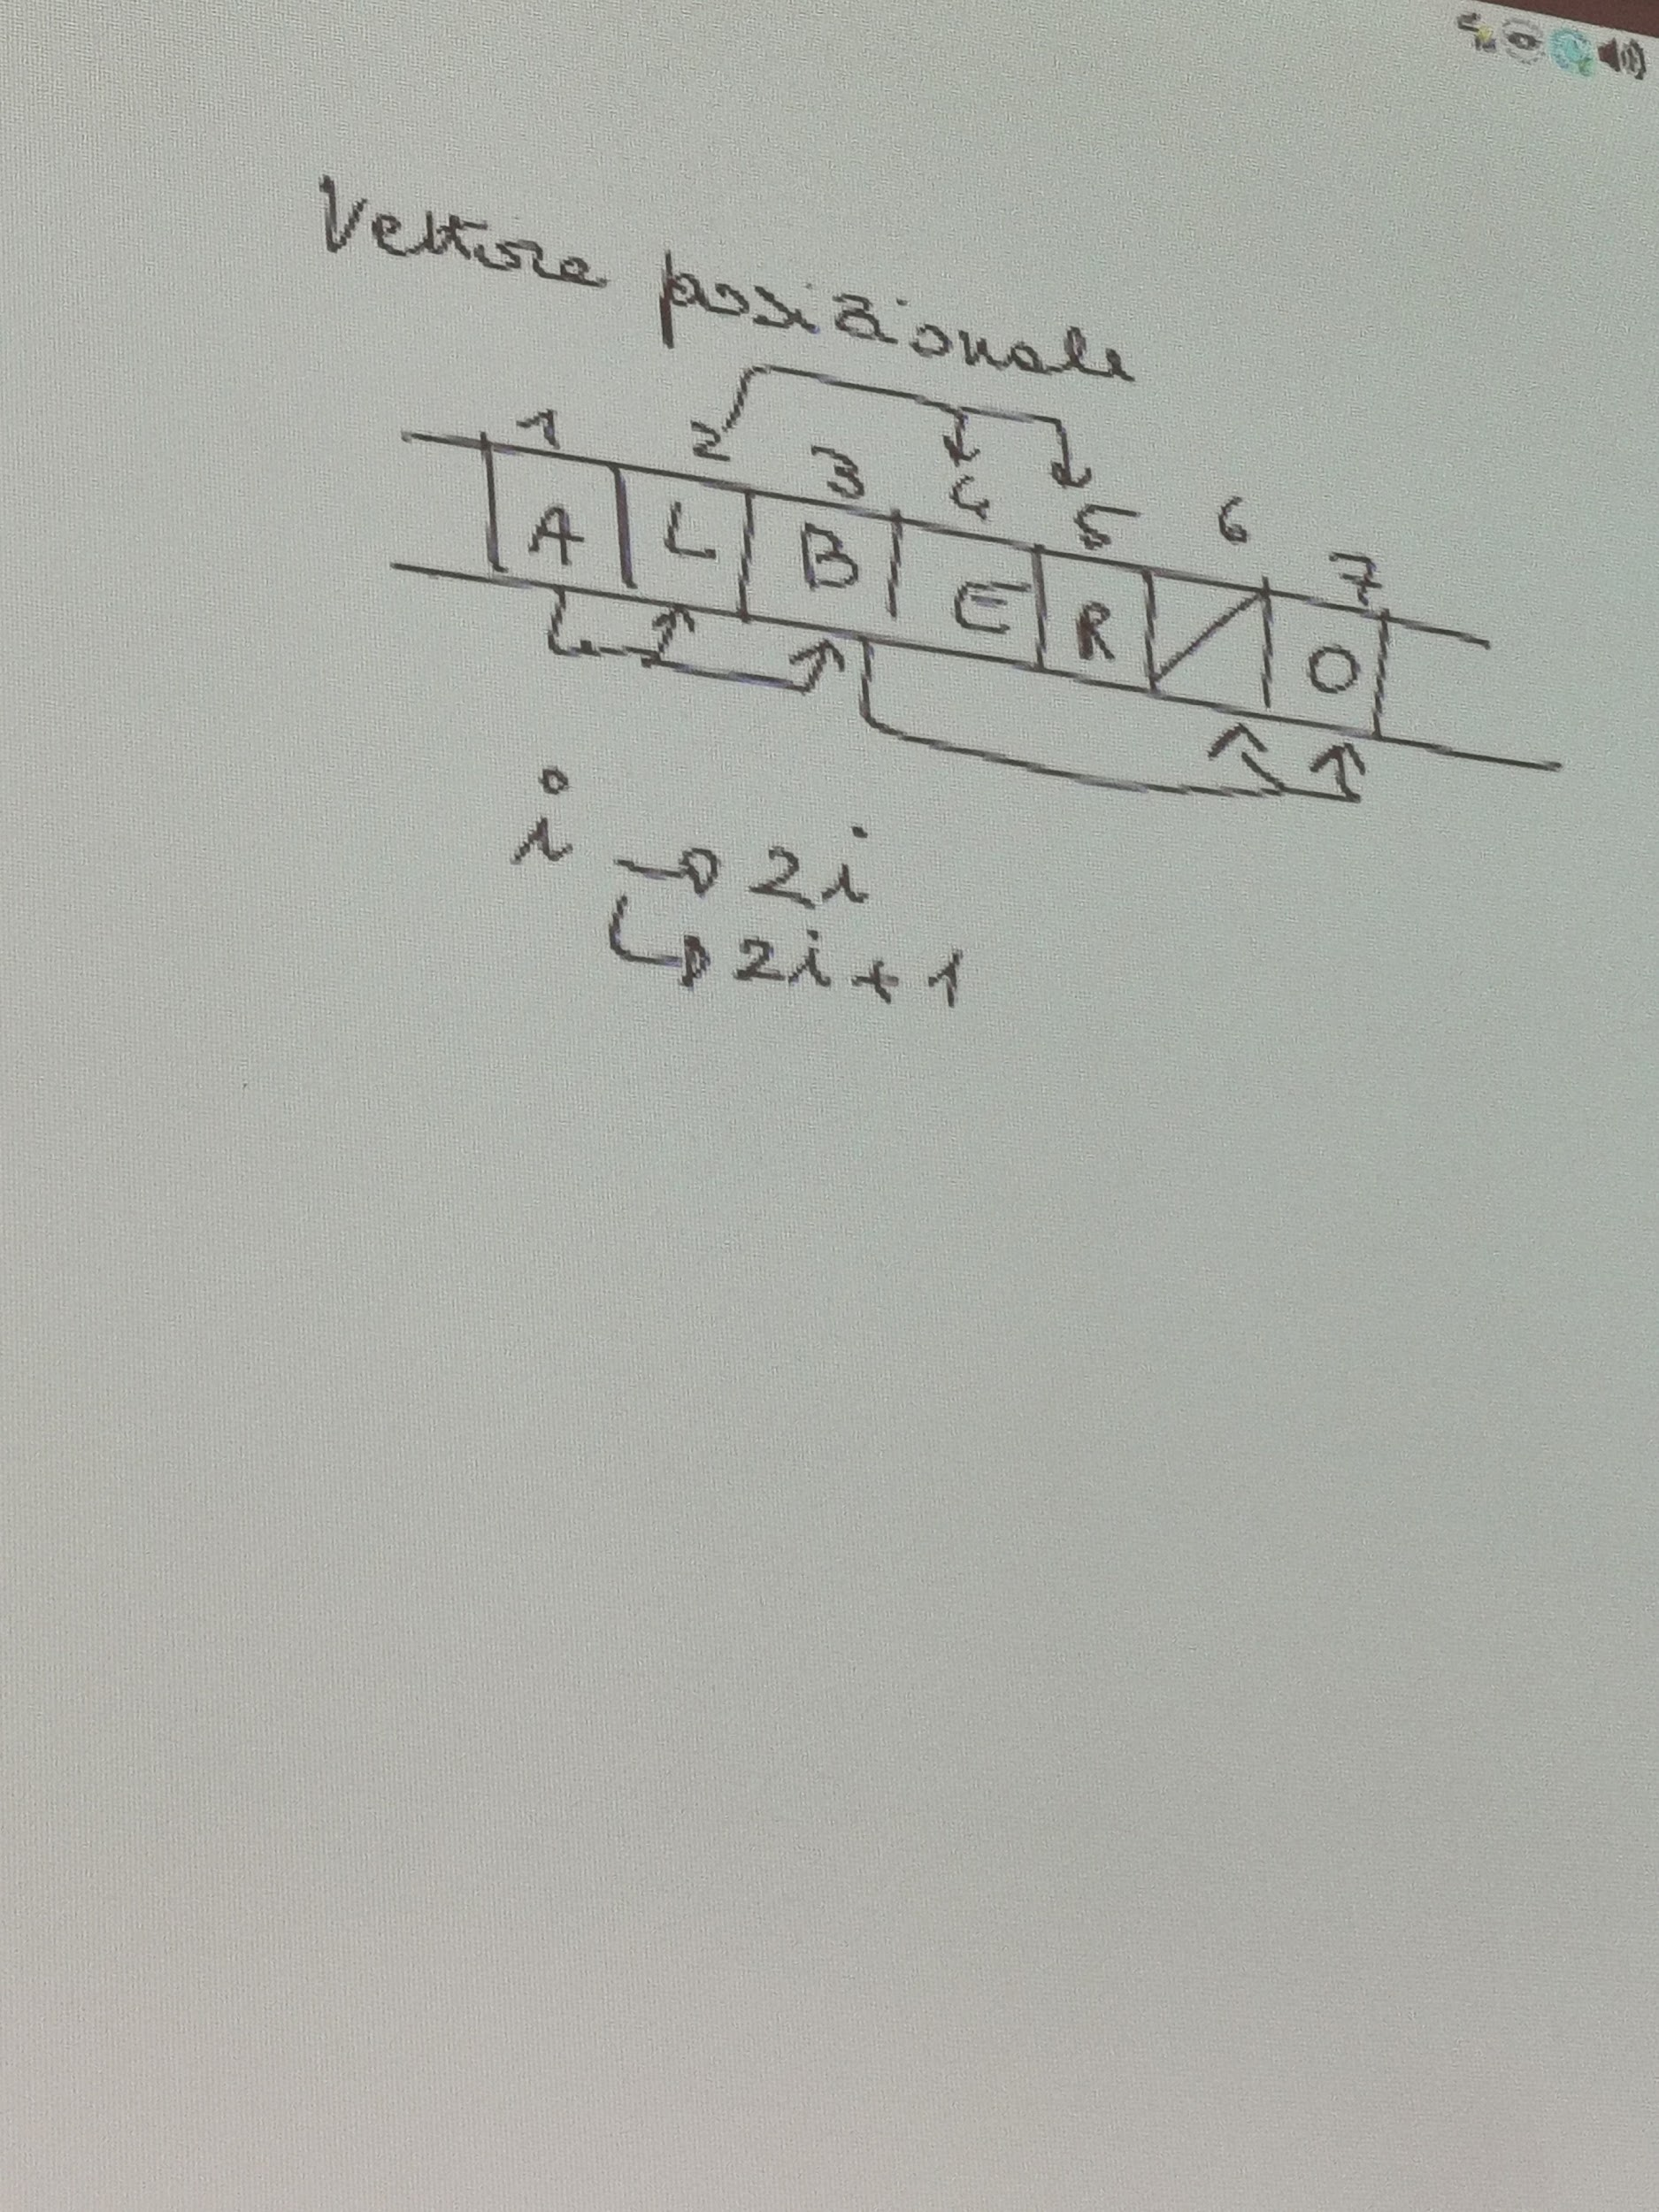 Vettore posizionale
1 2 3 4 5 6 7
A L B E R O
i → 2i
↳ 2i + 1